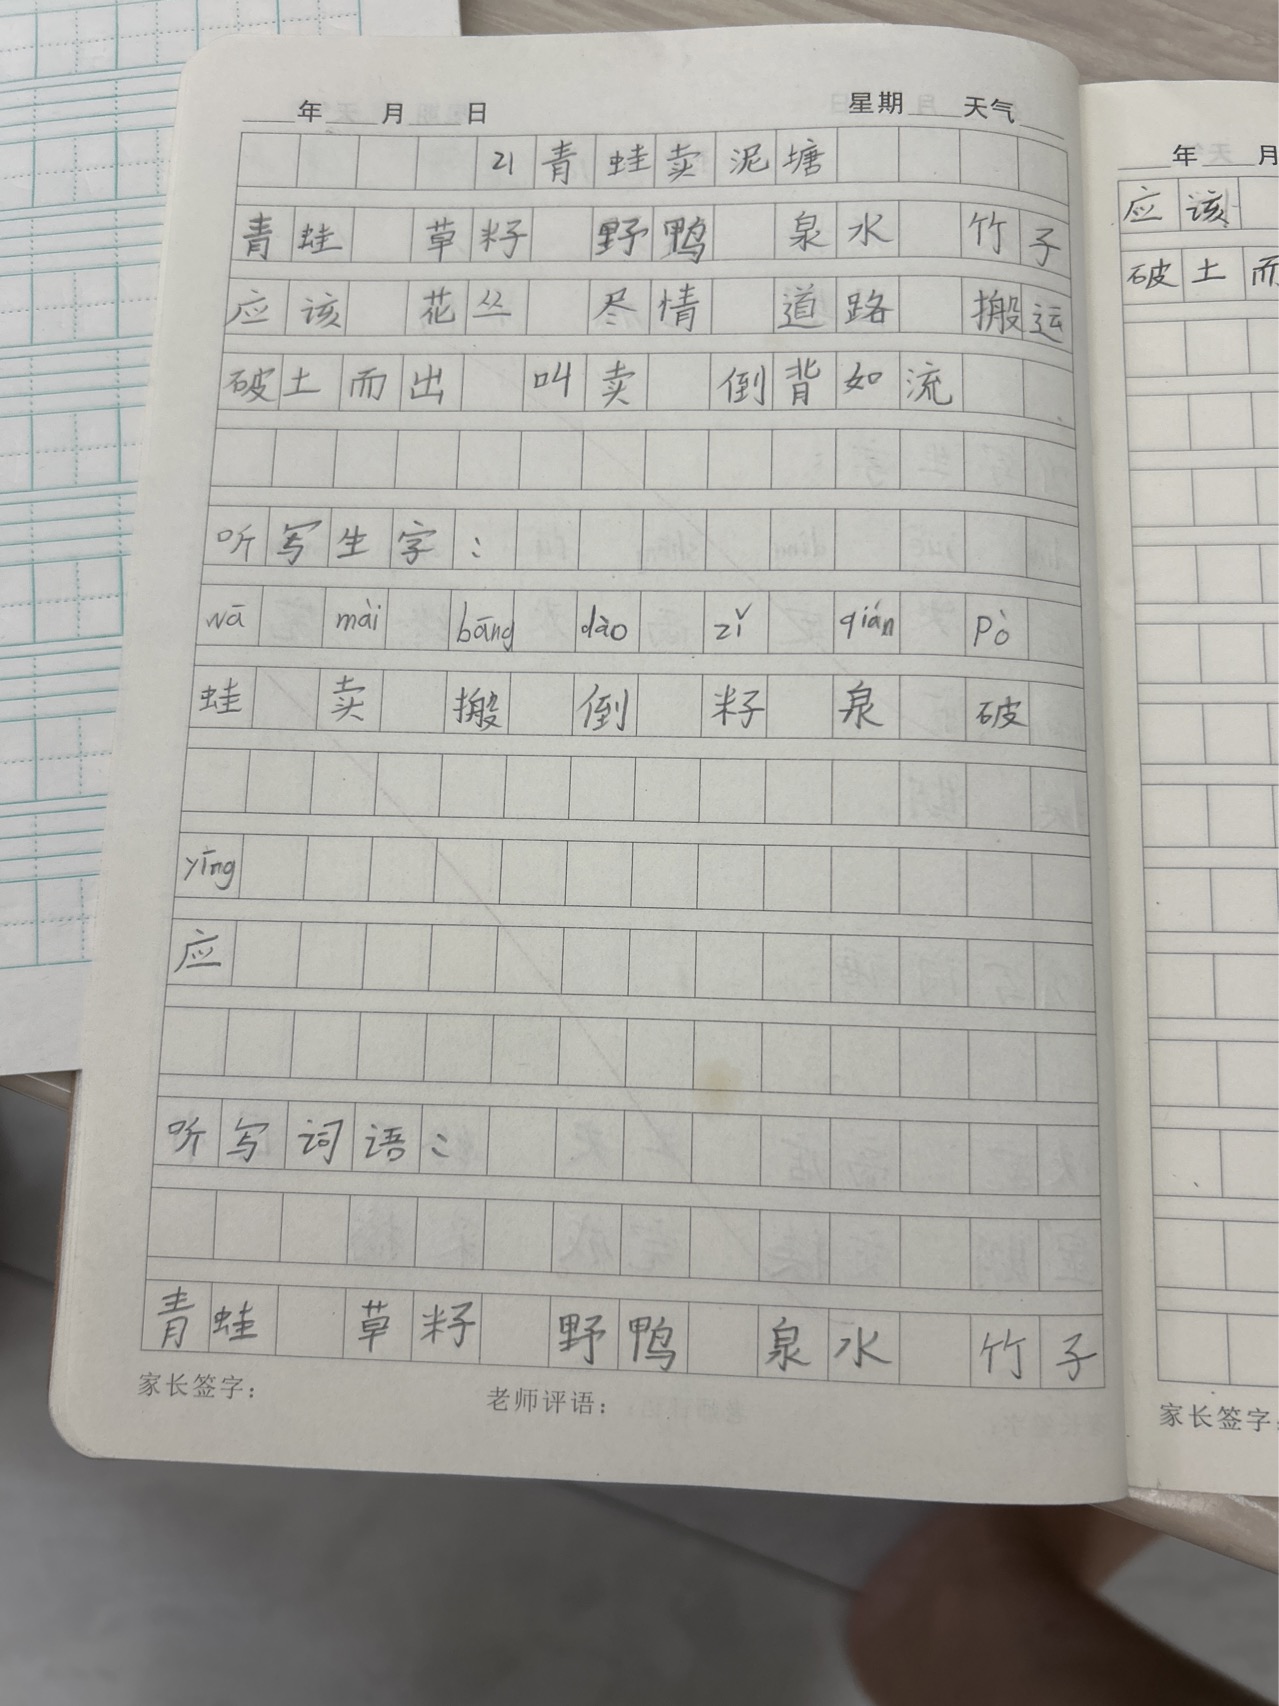 年 月 日 星期 天气
21青蛙卖泥塘
青蛙 草籽 野鸭 泉水 竹子
应该 花丛 尽情 道路 搬运
破土而出 叫卖 倒背如流
听写生字：
wā mài bāng dào zǐ qián pò
蛙 卖 搬 倒 籽 泉 破
yīng
应
听写词语：
青蛙 草籽 野鸭 泉水 竹子
家长签字： 老师评语：
年 月
应该
破土而
家长签字：